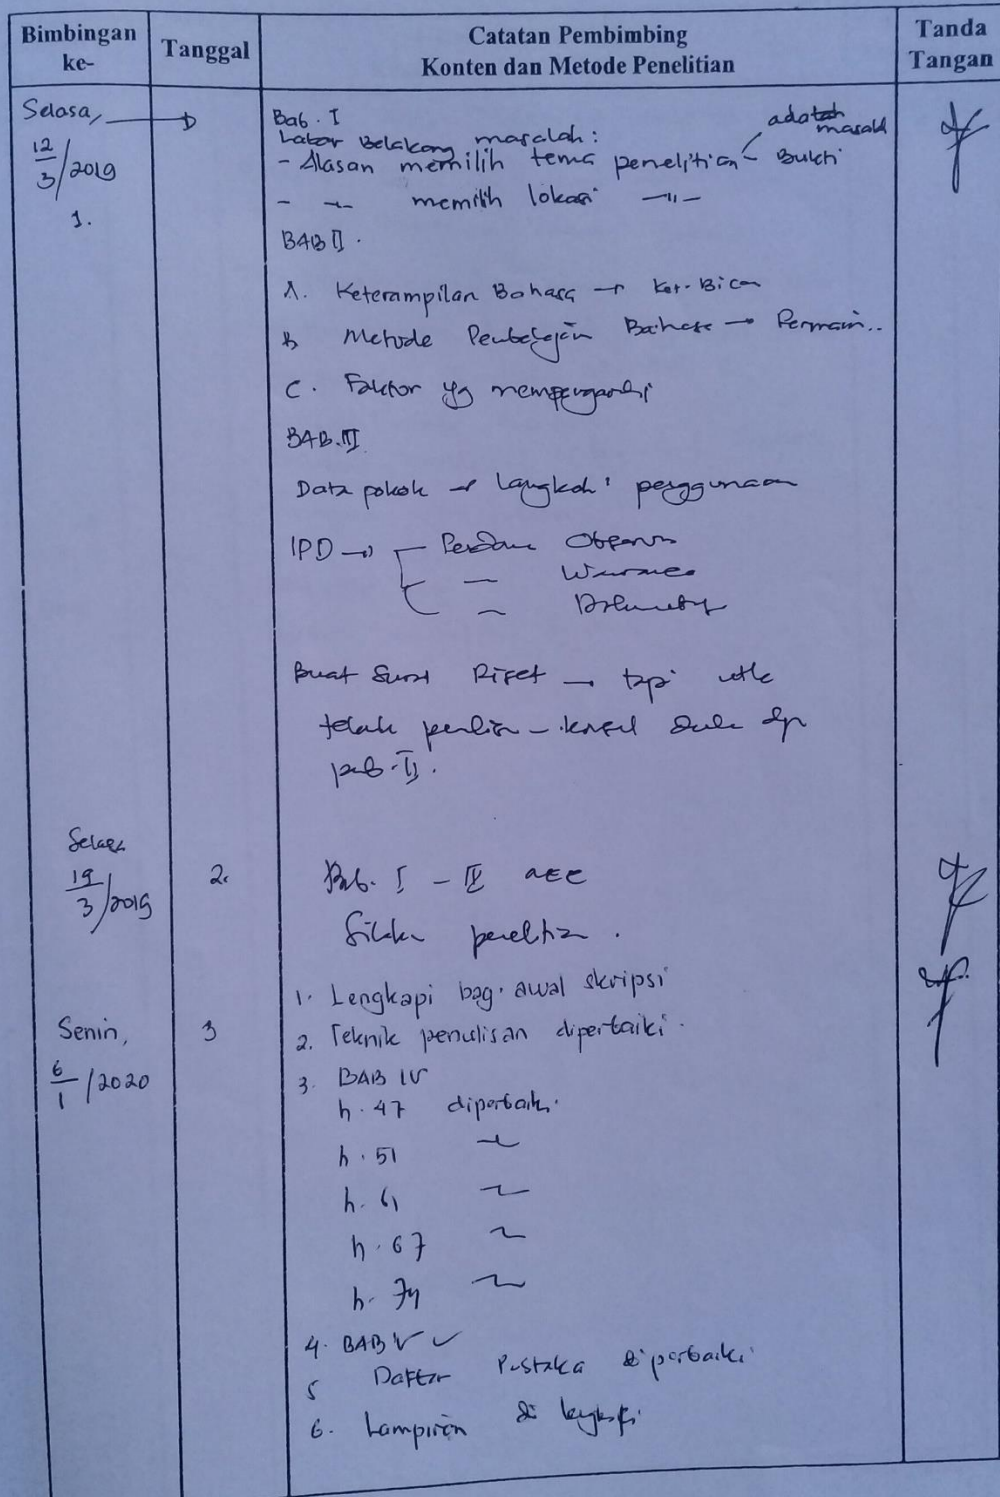 Bimbingan ke-
Tanggal
Catatan Pembimbing
Konten dan Metode Penelitian
Tanda Tangan
Selasa,
12/3/2019
1.
Bab. I
Latar Belakang masalah:
- Alasan memilih tema penelitian - Bukti
adalah masalah
- -"- memilih lokasi -"-
BAB II.
A. Keterampilan Bahasa → Ket. Bicara
B Metode Pembelajaran Bahasa → Permain..
C. Faktor yg mempengaruhi
BAB. III
Data pokok → langkah² penggunaan
IPD → Pedoman Observasi
Wawancara
Dokumentasi
Buat Surat Riset → tapi utk
dulu dg
pemb. II.
Selasa
19/3/2019
2.
Bab. I - III acc
Silakan penelitian.
Senin,
6/1/2020
3
1. Lengkapi bag. awal skripsi
2. Teknik penulisan diperbaiki.
3. BAB IV
h. 47 diperbaiki.
h. 51 〃
h. 61 〃
h. 67 〃
h. 74 〃
4. BAB V ✓
5 Daftar Pustaka diperbaiki
6. Lampiran di lengkapi